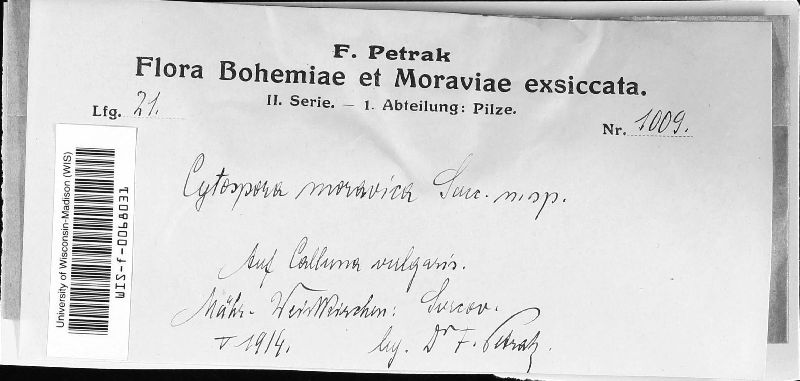 F. Petrak
Flora Bohemiae et Moraviae exsiccata.
II. Serie. — 1. Abteilung: Pilze.
Lfg. 21.
Nr. 1009.
Cytospora moravica n. sp.
Auf Calluna vulgaris.
Mähr.-Weisskirchen:
V 1914. leg. Dr F. Petrak.
University of Wisconsin-Madison (WIS)
WIS-f-0068031